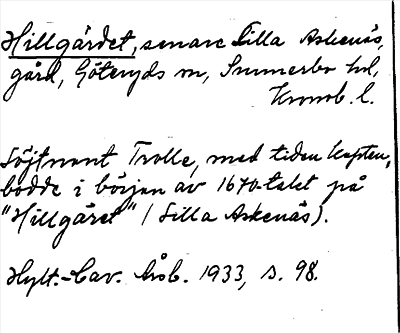 Hillgärdet, senare Lilla Askenäs,
gård, Göteryds sn, Sunnerbo hd,
Kronob. l.
Löjtnant Trolle, med tiden kapten,
bodde i början av 1670-talet på
"Hillgäret" (Lilla Askenäs).
Hylt.-Cav. Årsb. 1933, s. 98.